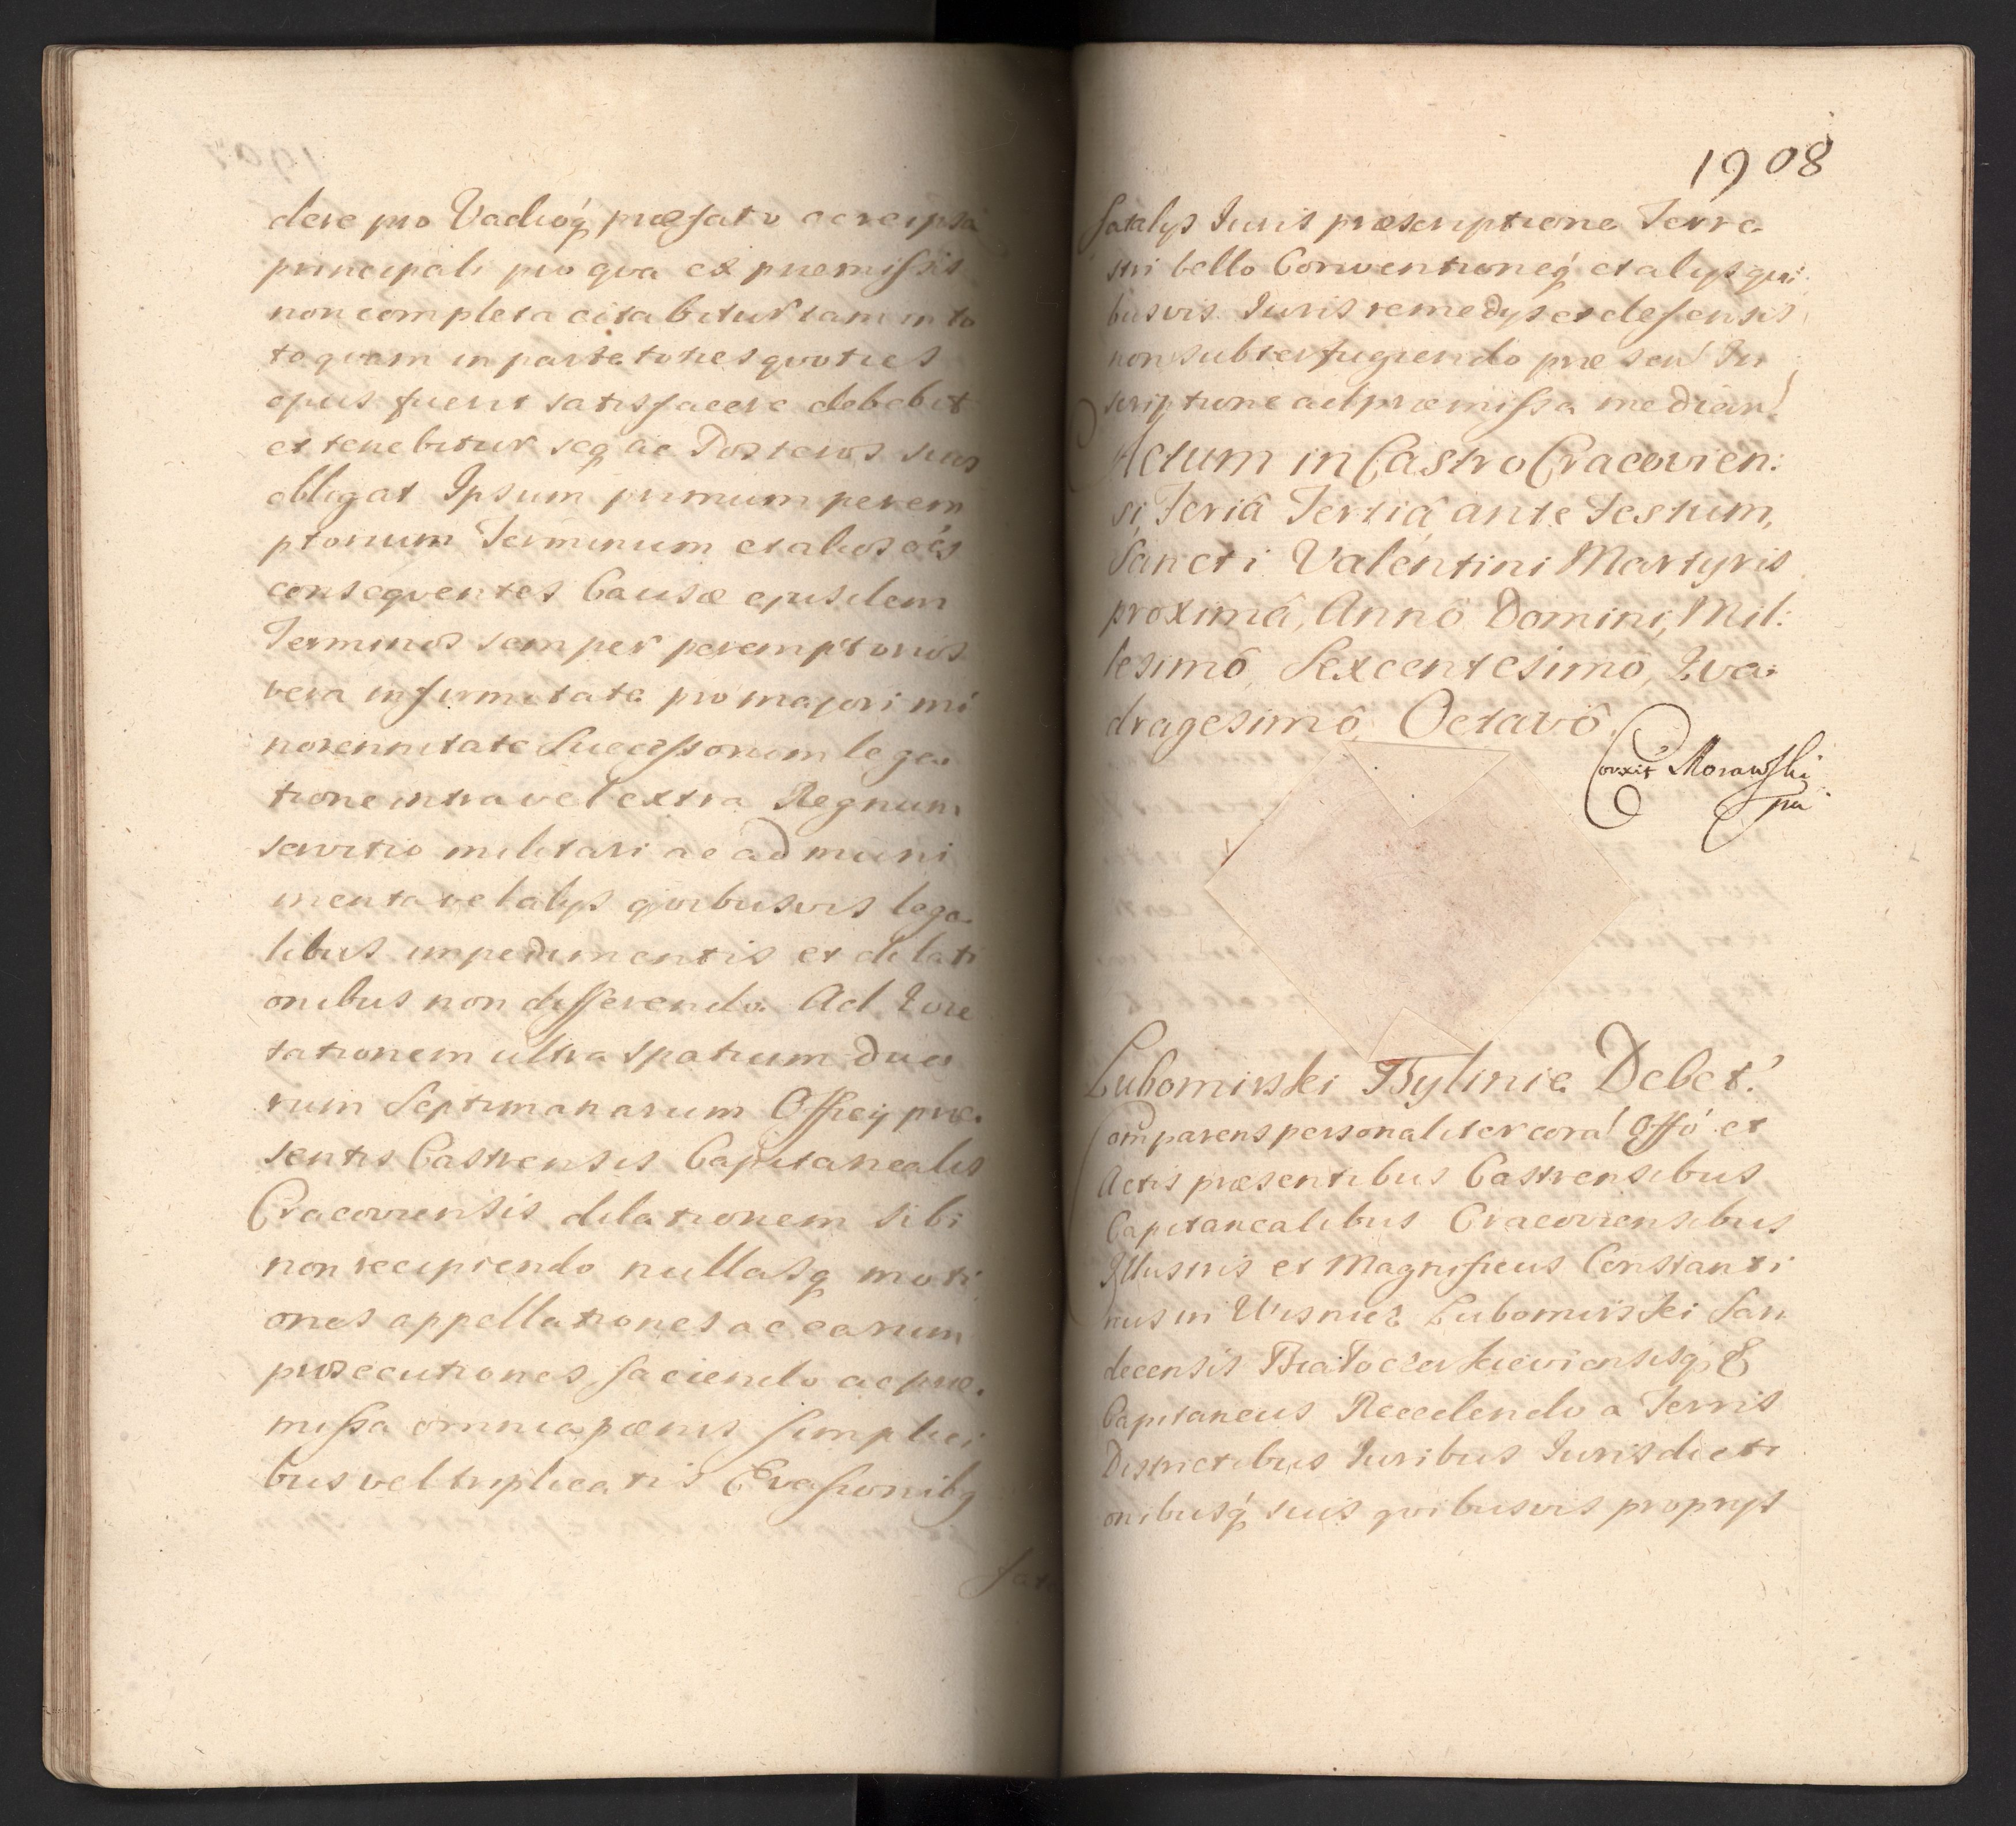 dere pro Vadioq́ præfato ac re ipsa
principali pro qva ex præmissis
non completa citabitur tam in to
to qvam in parte toties qvoties
opus fuerit satisfacere debebit
et tenebitur seq ac Posteros suos
obligat Ipsum primum perem
ptorium Terminum et alios oe͠s
conseqventes Causæ ejusdem
Terminos semper peremptorios
vera infirmitate pro majori mi
norennitate Successorum lega
tione intra vel extra Regnum
servitio militari ac ad muni
menta vel alys qvibusvis lega
libus impedimentis et dilati
onibus non differendo. Ad Qvie
tationem ultra spatium dua
rum Septimanarum Officij præ
sentis Castrensis Capitanealis
Cracoviensis dilationem sibi
non recipiendo nullasq moti
ones appellationes ac earum
prosecutiones faciendo ac præ
missa omnia pœnis simplici
bus vel triplicatis Evasionibq
fata
1908
fatalys Iuris præscriptione Terre
stri bello Conventioneq́ et alys qvi
busvis Iuris remedys et defensis
non subterfugiendo præsen! In
scriptione ad præmissa median!
Actum in Castro Cracovien:
si, Feriâ Tertiâ ante Festum,
Sancti Valentini Martyris
proximâ, Annô Domini, Mil:
lesimô, Sexcentesimô, Qva:
dragesimô, Octavô
Corxit Morawski
mp
Lubomirski Bylinie Debet!
Comparens personaliter cora! Offo et
Actis præsentibus Castrensibus
Capitanealibus Cracoviensibus
Illustris et Magnificus Constanti
nus in Wisnicz Lubomirski San
decensis Białocerkieviensisq &
Capitaneus Recedendo a Terris
Districtibus Iuribus Iurisdicti
onibusq́ suis qvibusvis proprys